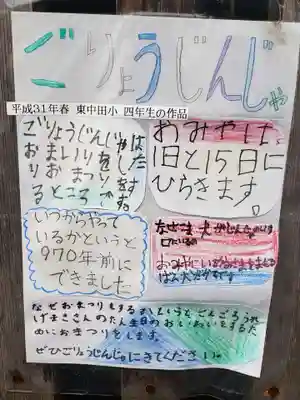 ごりょうじんじゃ
平成31年春 東中田小 四年生の作品
ごりょうじんじゃは
おまいりをした
りおまつりをす
るところです
おみやは、
1日と15日に
ひらきます。
いつからやって
いるかというと
970年前に
できました
なぜこま犬がじんじゃのいり
口にいるの
おみやにいるかみさまをまもる
ばん犬だからです。
なぜおまつりをするかというとごんごろうか
げまささんのたん生日のおいわいをするた
めにおまつりをします。
ぜひごりょうじんじゃにきてください。